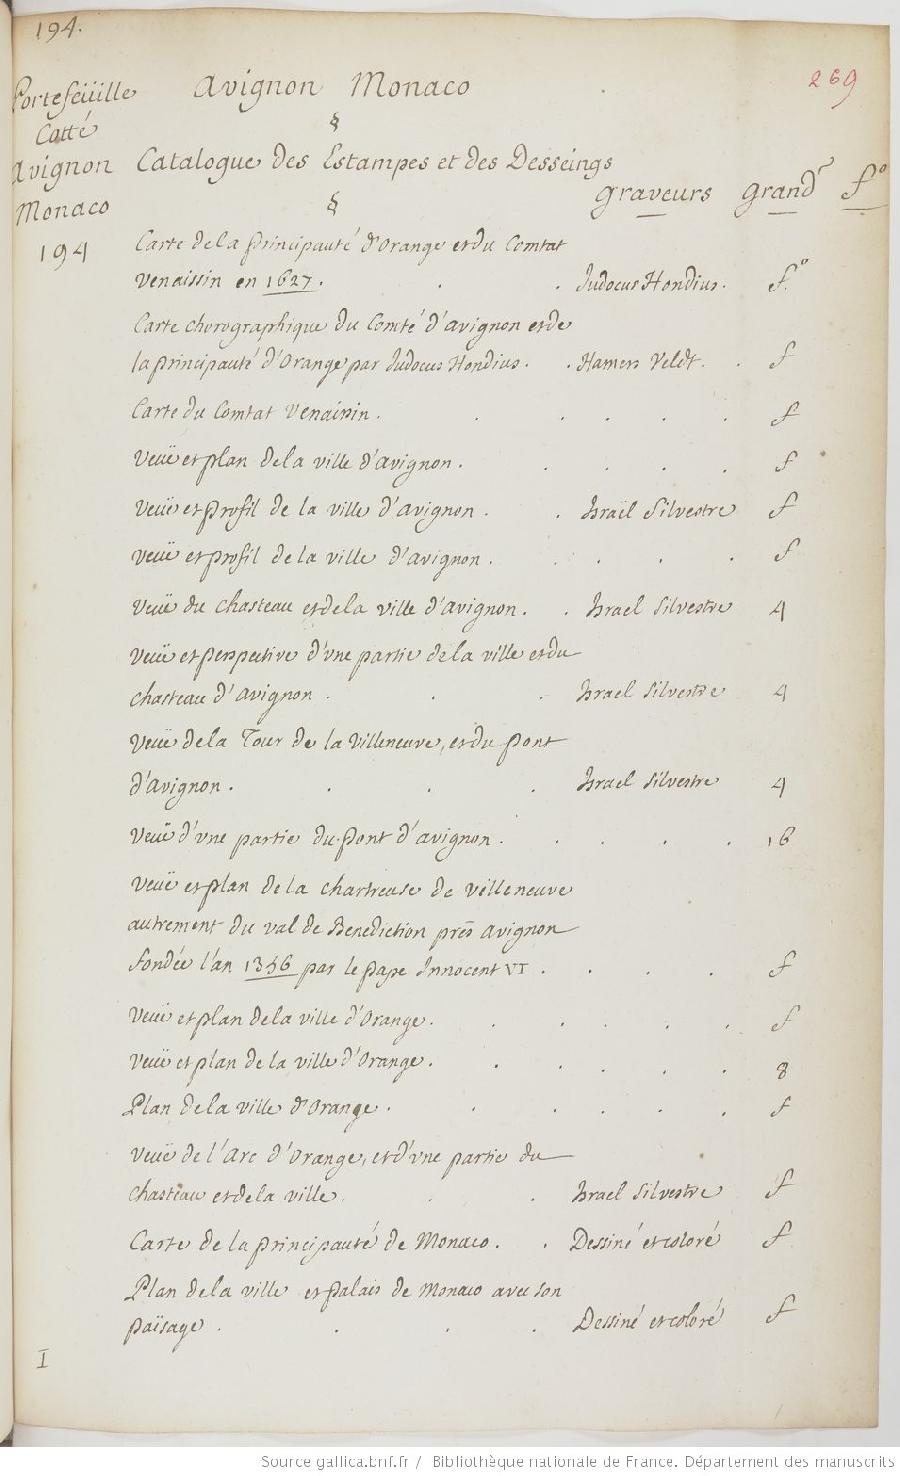 194.
Portefeüille
Cotté
Avignon
Monaco
194
Avignon Monaco
269
§
Catalogue des Estampes et des Desseings
§
graveurs grandr fo
Carte de la principauté d'Orange et du Comtat
Venaissin en 1627. Judocus Hondius. f.o
Carte chorographique du Comté d'Avignon et de
la principauté d'Orange par Judocus Hondius. Hamers Veldt. f
Carte du Comtat Venaissin. f
Veuë et plan de la ville d'Avignon. f
Veuë et profil de la ville d'Avignon. Israël Silvestre f
Veuë et profil de la ville d'Avignon. f
Veuë du chasteau et de la ville d'Avignon. Israel Silvestre 4
Veuë et perspective d'vne partie de la ville et du
chasteau d'Avignon Israel Silvestre 4
Veuë de la Tour de la Villeneuve, et du pont
d'Avignon. Israel Silvestre 4
Veuë d'vne partie du pont d'Avignon. 16
Veuë et plan de la chartreuse de Villeneuve
autrement du val de Benediction près Avignon
fondée l'an 1356 par le pape Innocent VI. f
Veuë et plan de la ville d'Orange. f
Veuë et plan de la ville d'Orange. 8
Plan de la ville d'Orange. f
Veuë de l'Arc d'Orange, et d'vne partie du
chasteau et de la ville. Israel Silvestre f
Carte de la principauté de Monaco. Dessiné et coloré f
Plan de la ville et palais de Monaco avec son
païsage. Dessiné et coloré f
I
Source gallica.bnf.fr / Bibliothèque nationale de France. Département des manuscrits